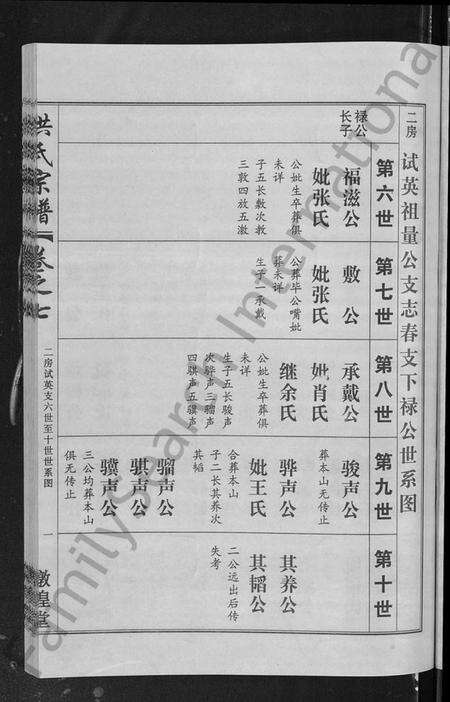 二房
试英祖量公支志春支下禄公世系图
第六世
禄公
长子
福滋公
妣张氏
公妣生卒葬俱
未详
子五长敷次教
三敦四放五激
第七世
敷公
妣张氏
公葬毕公嘴妣
葬未详
生子一承戴
第八世
承戴公
妣肖氏
继余氏
公妣生卒葬俱
未详
生子五长骏声
次骅声三骝声
四骐声五骥声
第九世
骏声公
葬本山无传止
骅声公
妣王氏
合葬本山
子二长其养次
其韬
骝声公
骐声公
骥声公
三公均葬本山
俱无传止
第十世
其养公
其韬公
二公远出后传
失考
洪氏宗谱
卷之七
二房试英支六世至十世世系图
一
敦煌堂
FamilySearch International